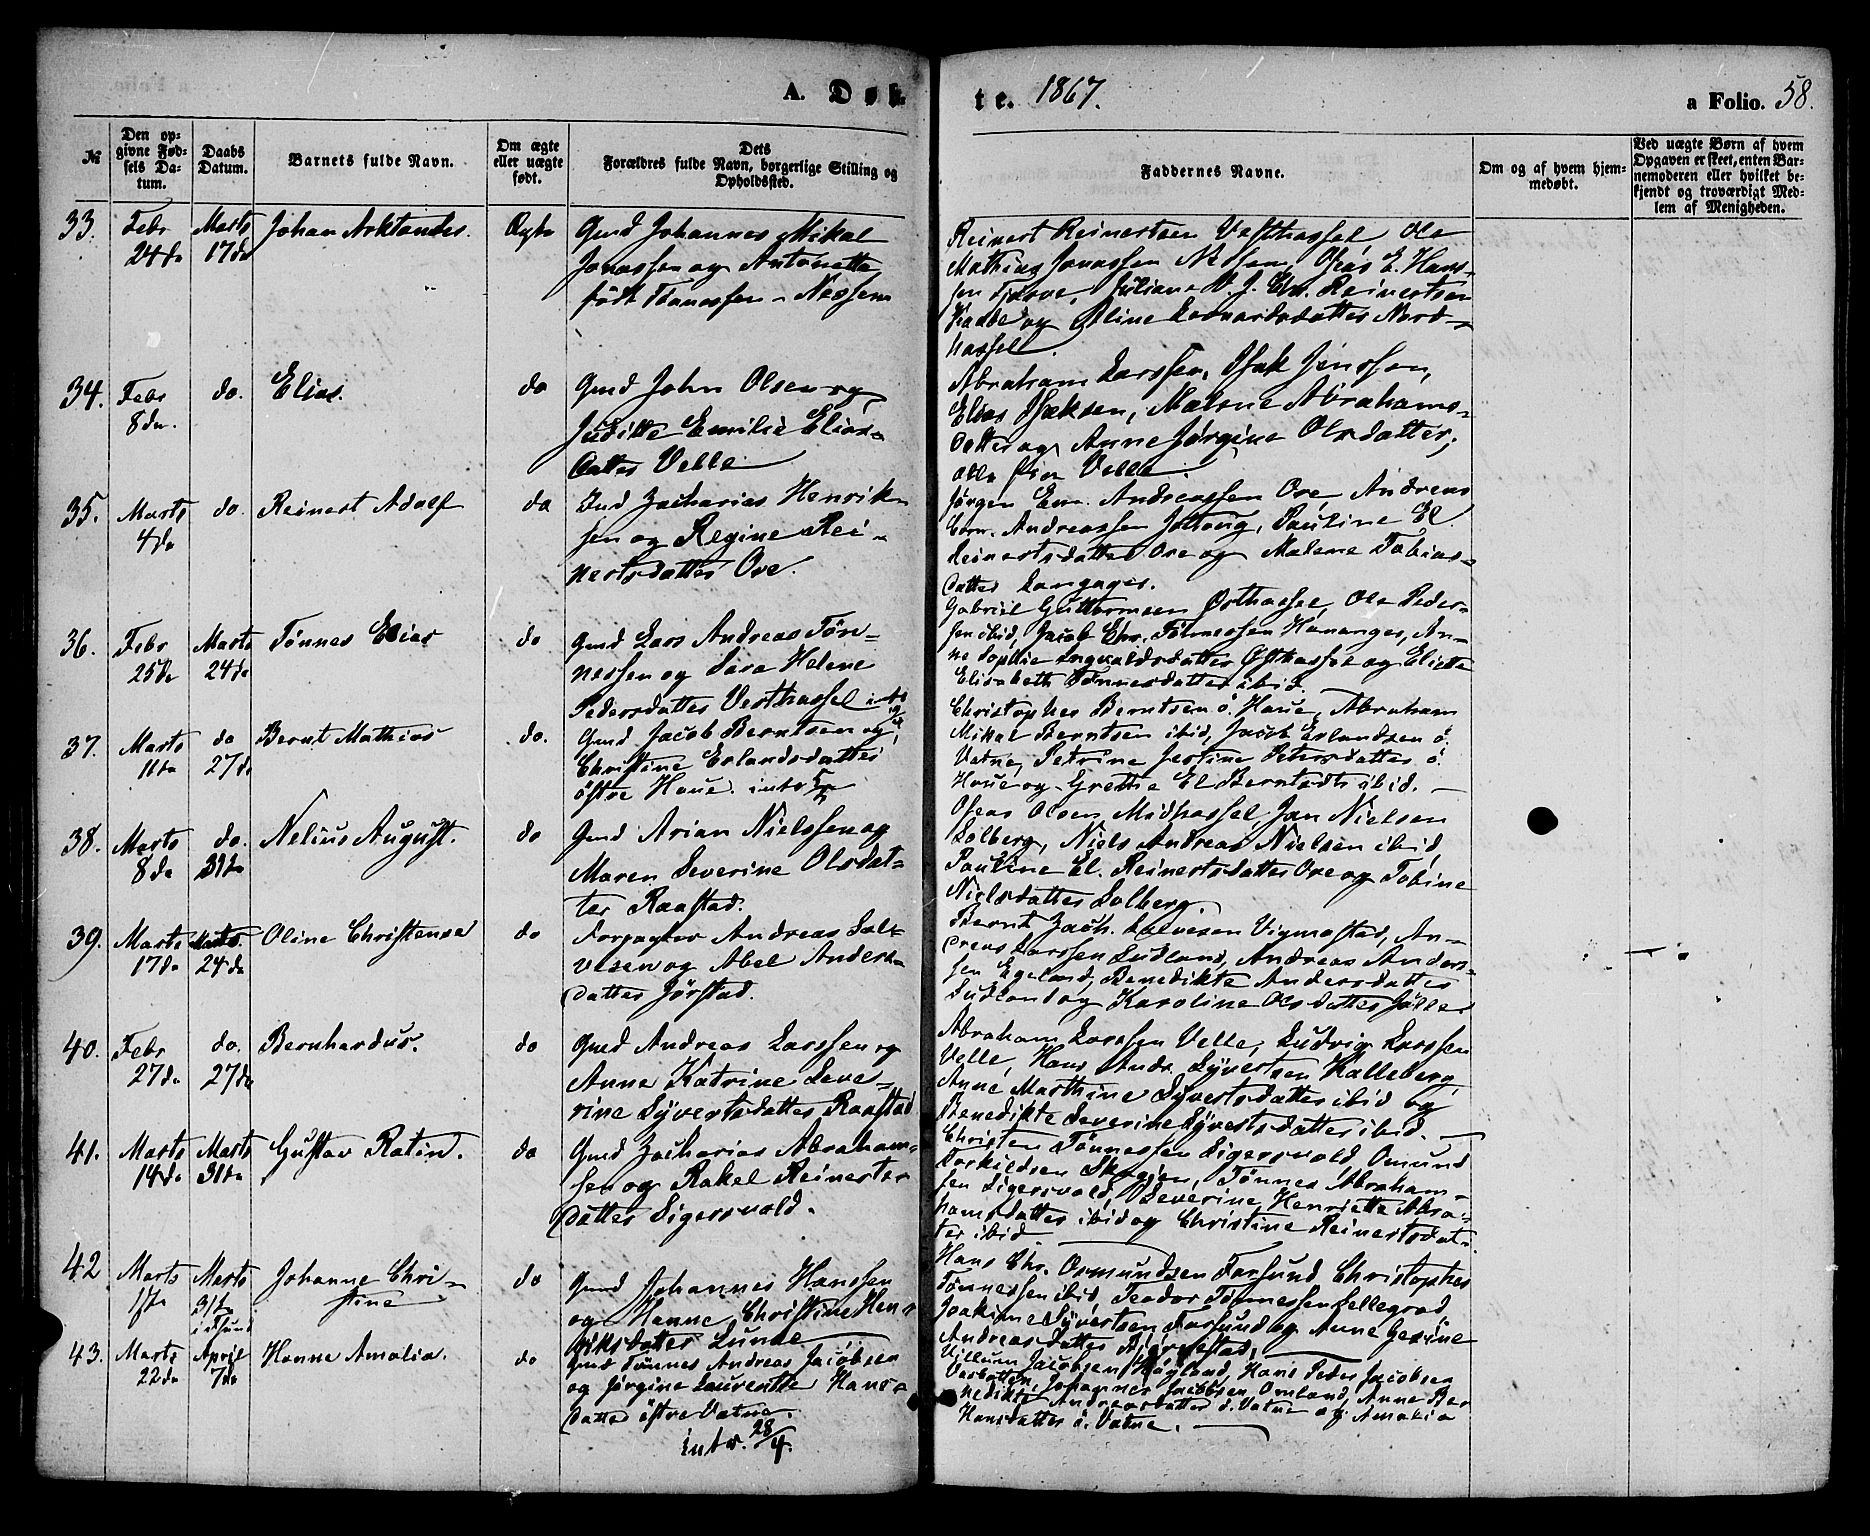 A. Døb-
te. 1867.
a Folio. 58.
№
Den op-
givne Fød-
sels Da-
tum.
Daabs
Datum.
Barnets fulde Navn.
Om ægte
eller uægte
født.
Dets
Forældres fulde Navn, borgerlige Stilling og
Opholdssted.
Faddernes Navne.
Om og af hvem hjem-
medøbt.
Ved uægte Børn af hvem
Opgaven er skeet, enten Bar-
nemoderen eller hvilket be-
kjendt og troværdigt Med-
lem af Menigheden.
33. Febr 24de
Marts 17de
Johan
Ægte
Gmd Johannes Mikal
Jonassen og Antonette
født Tønnessen - Nessem
Reinert Reinertsen Vesthassel, Ole
Mathias Jonassen Nessem, Oseas E. Hans-
sen Tjørve, Juliane Chr. Reinertsen
Kaabe og Oline Leonardsdatter Nord-
hassel.
34. Febr 8de
do.
Elias.
do
Gmd John Olsen og
Juditte Emilie Elias-
datter Velle
Abraham Larssen, Isak Jenssen,
Elias Isaksen, Malene Abrahams-
datter og Anne Jørgine Olsdatter,
alle fra Velle.
35. Marts 4de
do.
Reinert Adolf
do
Ind Zacharias Henrik-
sen og Regine Rei-
nertsdatter Ore.
Jørgen Em. Andreassen Ore, Andreas
Corn. Andreassen Jølloug, Pauline El
Reinertsdatter Ore og Malene Tobias-
datter Langager.
36. Febr 25de
Marts 24de
Tønnes Elias
do
Gmd Lars Andreas Tøn-
nessen og Sara Helene
Pedersdatter Vesthassel
Gabriel Guttormsen Østhassel, Ole Peder-
sen ibid, Jacob Chr. Tønnessen Hananger, An-
ne Sophie Ingvaldsdatter Østhassel og Eliette
Elisabeth Tønnesdatter ibid.
37. Marts 11te
do 27de
Bernt Mathias
do.
Gmd Jacob Berntsen og
Christine Erlandsdatter
østre Haue. intr
Christopher Berntsen ø. Haue, Abraham
Mikal Berntsen ibid, Jacob Erlandsen ø.
Vatne, Petrine Jestine Petersdatter ø.
Haue og Grethe El Berntsdtr ibid.
38. Marts 8de
do. 31te
Nelius August.
do
Gmd Arian Nielssen og
Maren Severine Olsdat-
ter Raastad.
Oseas Olsen Midhassel, Jan Nielsen
Solberg, Niels Andreas Nielsen ibid
Pauline El. Reinertsdatter Ore og Tobine
Nielsdatter Solberg.
39. Marts 17de
Marts 24de
Oline Christense
do
Forpagter Andreas Sal-
vesen og Abel Anders-
datter Jørstad.
Bernt Zach. Salvesen Vigmostad, An-
dreas Larssen Sudland, Andreas Anders-
sen Egeland, Benedikte Andersdatter
Sudland og Karoline Olsdatter Jølle
40. Febr 27de
do. 27de
Bernhardus.
do
Gmd Andreas Larssen og
Anne Katrine Seve-
rine Syvertsdatter Raastad
Abraham Larssen Velle, Ludvig Larssen
Velle, Hans Andr. Syvertsen Kalleberg,
Anne Marthine Syvertsdatter ibid og
Benedikte Severine Syvertsdatter ibid.
41. Marts 14de
Marts 31te
Gustav Ratin.
do
Gmd Zacharias Abraham-
sen og Rakel Reinerts-
datter Sigersvold.
Christen Tønnessen Sigersvold, Omund
Torkildsen Skogien, Tønnes Abraham-
sen Sigersvold, Severine Henriette Abra-
hamsdatter ibid og Christine Reinertsdat-
ter ibid
42 Marts 1ste
Marts 31te
Johanne Chri-
stine
do
Gmd Johannes Hanssen
og Hanne Christine Hen-
riksdatter Lunde
Hans Chr. Osmundsen Farsund, Christopher
Tønnessen ibid, Teodor Tønnessen Sellegrod,
Joakime Syvertsen Farsund og Anne Gesine
Andreasdatter Bjørnestad.
43. Marts 22de
April 7de
Hanne Amalia.
do
Gmd Tønnes Andreas Jacobsen
og Jørgine Laurentse Hans-
datter østre Vatne.
intr. 28/4.
Villum Jacobsen Høyland, Hans Peder Jacobsen
Johannes Jacobsen Omland, Anne Be-
nedikte Andreasdatter ø. Vatne og Amalia
Hansdatter ø. Vatne.